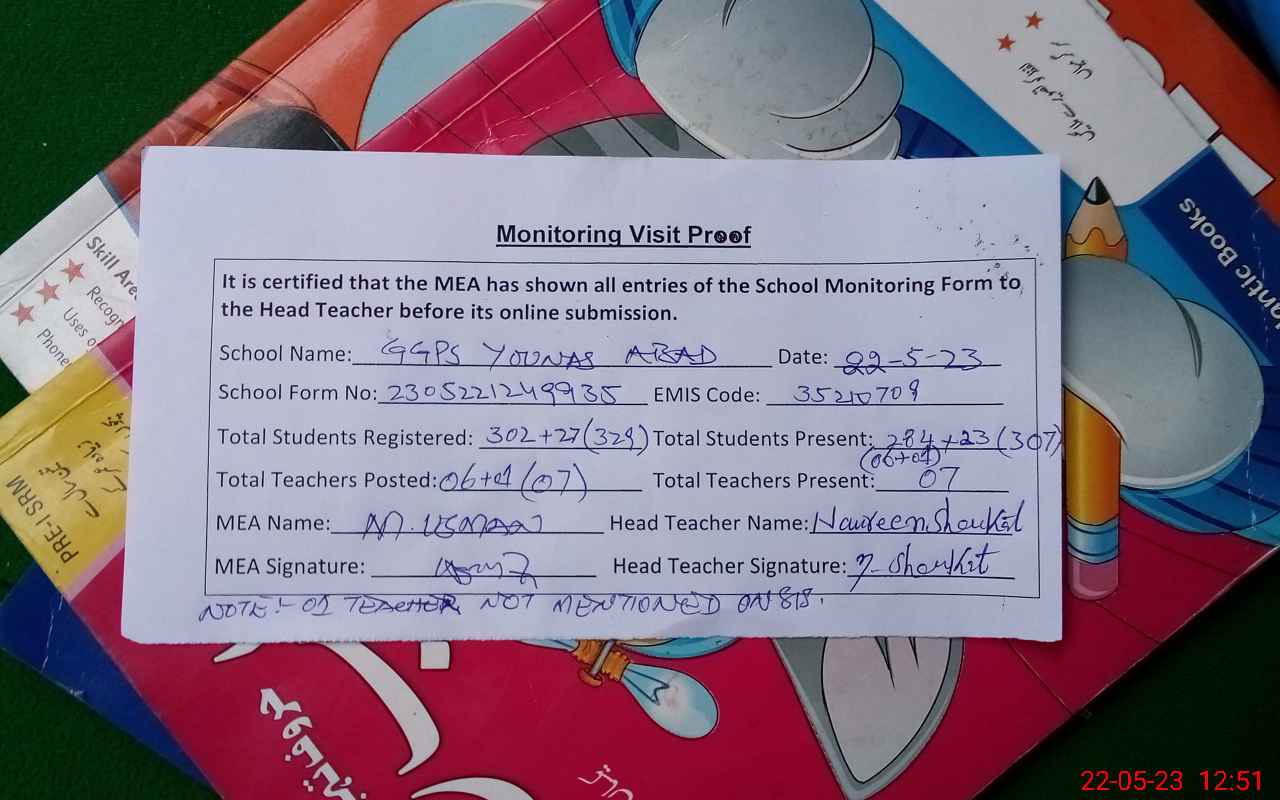 Monitoring Visit Proof
It is certified that the MEA has shown all entries of the School Monitoring Form to
the Head Teacher before its online submission.
School Name: GGPS YOUNAS ABAD Date: 22-5-23
School Form No: 2305221249935 EMIS Code: 35210709
Total Students Registered: 302+27(329) Total Students Present: 284+23(307)
(06+01)
Total Teachers Posted: 06+01(07) Total Teachers Present: 07
MEA Name: M. USMAN Head Teacher Name: Naureen Shoukat
MEA Signature: Head Teacher Signature: N. Shoukat
NOTE:- 01 TEACHER NOT MENTIONED ON SIS.
Skill Area
Recogn
Uses o
Phone
PRE-I SRM
antic Books
22-05-23 12:51